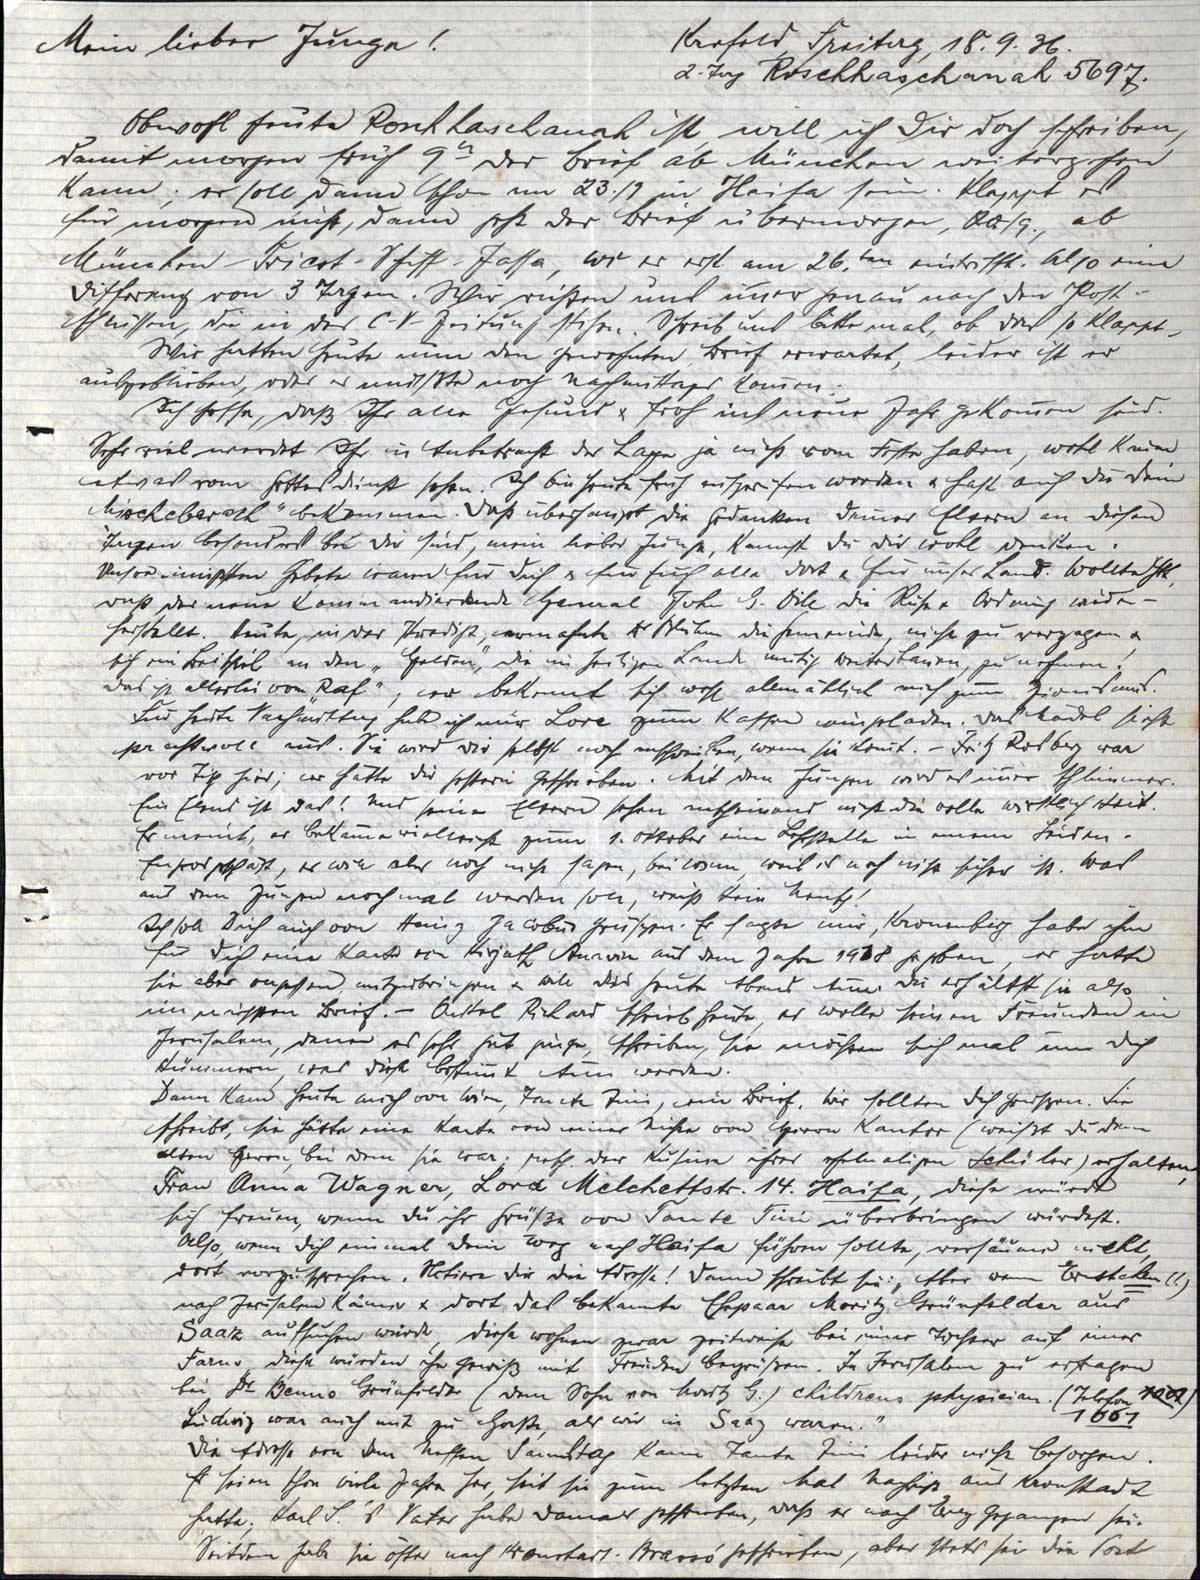 Mein lieber Junge! Krefeld, Freitag, 18.9.36.
2. Tag Roschhaschanah 5697.
Obwohl heute Roschhaschanah ist, will ich Dir doch schreiben,
damit morgen früh 9 h der Brief ab München weitergehen
kann; er soll dann schon am 23./9 in Haifa sein. Klappt es
für morgen nicht, dann geht der Brief übermorgen, ab
München - Triest - Schiff - Jaffa, wo er erst am 26. ten eintrifft. Also eine
Differenz von 3 Tagen. Wir richten uns immer genau nach den Post-
schlüssen, die in der C-V-Zeitung stehen. Schreib uns bitte mal, ob das so klappt.
Wir hatten heute nun den gewohnten Brief erwartet, leider ist er
ausgeblieben, oder er müsste noch nachmittags kommen.
Ich hoffe, daß Ihr alle gesund & froh ins neue Jahr gekommen seid.
Sehr viel werdet Ihr in Anbetracht der Lage ja nicht vom Feste haben, wohl kaum
etwas vom Gottesdienst sehen. Ich bin heute früh aufgerufen worden & hast auch Du Dein
"Mischeberach" bekommen. Daß überhaupt die Gedanken Deiner Eltern an diesen
Tagen besonders bei Dir sind, mein lieber Junge, kannst Du Dir wohl denken.
Unsere innigsten Gebete waren für Dich & für Euch alle dort & für unser Land. Wollte Gott,
daß der neue kommandierende General John G. Dill die Ruhe & Ordnung wieder-
herstellt. Heute, in der Predigt, ermahnte Dr Bluhm die Gemeinde, nicht zu verzagen &
sich ein Beispiel an den "Helden", die im heiligen Lande mutig weiterbauen, zu nehmen!
Das ist allerlei vom "Raf", er bekennt sich wohl allmählich auch zum Zionismus.
Für heute Nachmittag hab ich mir Lore zum Kaffee eingeladen. Das Mädel sieht
prachtvoll aus. Sie wird Dir selbst noch schreiben, wenn sie kommt. - Fritz Rosberg war
vor Tisch hier; er hatte Dir gestern geschrieben. Mit dem Jungen wird es immer schlimmer.
Ein Elend ist das! Und seine Eltern sehen anscheinend nicht die volle Wirklichkeit.
Er meint, er bekäme vielleicht zum 1. Oktober eine Lehrstelle in einem Seiden-
Engrosgeschäft, er will aber noch nicht sagen, bei wem, weil es noch nicht sicher ist. Was
aus dem Jungen noch mal werden soll, weiß kein Mensch!
Ich soll Dich auch von Heinz Jacobus grüssen. Er sagte mir, Kronenberg habe ihm
für Dich eine Karte von Kirjath Anavim aus dem Jahre 1928 gegeben, er hatte
sie aber vergessen mitzubringen & will das heute Abend tun. Du erhältst sie also
im nächsten Brief. - Onkel Richard schrieb heute, er wolle seinen Freunden in
Jerusalem, denen es sehr gut ginge, schreiben, sie möchten sich mal um Dich
kümmern, was diese bestimmt tun werden.
Dann kam heute auch von Wien, Tante Tini, ein Brief. Wir sollten Dich grüssen. Sie
schreibt, sie hätte eine Karte von einer Nichte von Herrn Kantor (weißt Du dem
alten Herrn, bei dem sie war; resp. der Kusine ihrer ehemaligen Schüler) erhalten,
Frau Anna Wagner, Lord Melchettstr. 14. Haifa, diese würde
sich freuen, wenn Du ihr Grüße von Tante Tini überbringen würdest.
Also, wenn Dich einmal Dein Weg nach Haifa führen sollte, versäume nicht,
dort vorzusprechen. Notiere Dir die Adresse! Dann schreibt sie: "Aber wenn Ernstchen (!)
nach Jerusalem käme & dort das bekannte Ehepaar Moritz Grünfelder aus
Saaz aufsuchen würde, diese wohnen zwar zeitweise bei einer Tochter auf einer
Farm, diese würden ihn gewiß mit Freuden begrüßen. In Jerusalem zu erfragen
bei Dr Benno Grünfelder (dem Sohn von Moritz G.) childrens physician. (Telefon
1661)
Ludwig war auch mit zu Gaste, als wir in Saaz waren."
Die Adresse von dem Neffen Samstag kann Tante Tini leider nicht besorgen.
Es seien schon viele Jahre her, seit sie zum letzten Mal Nachricht aus Kronstadt
hatte. Karl S.'s Vater habe damals geschrieben, daß er nach Erez gegangen sei.
Seitdem habe sie öfter nach Kronstadt-Brassó geschrieben, aber stets sei die Post